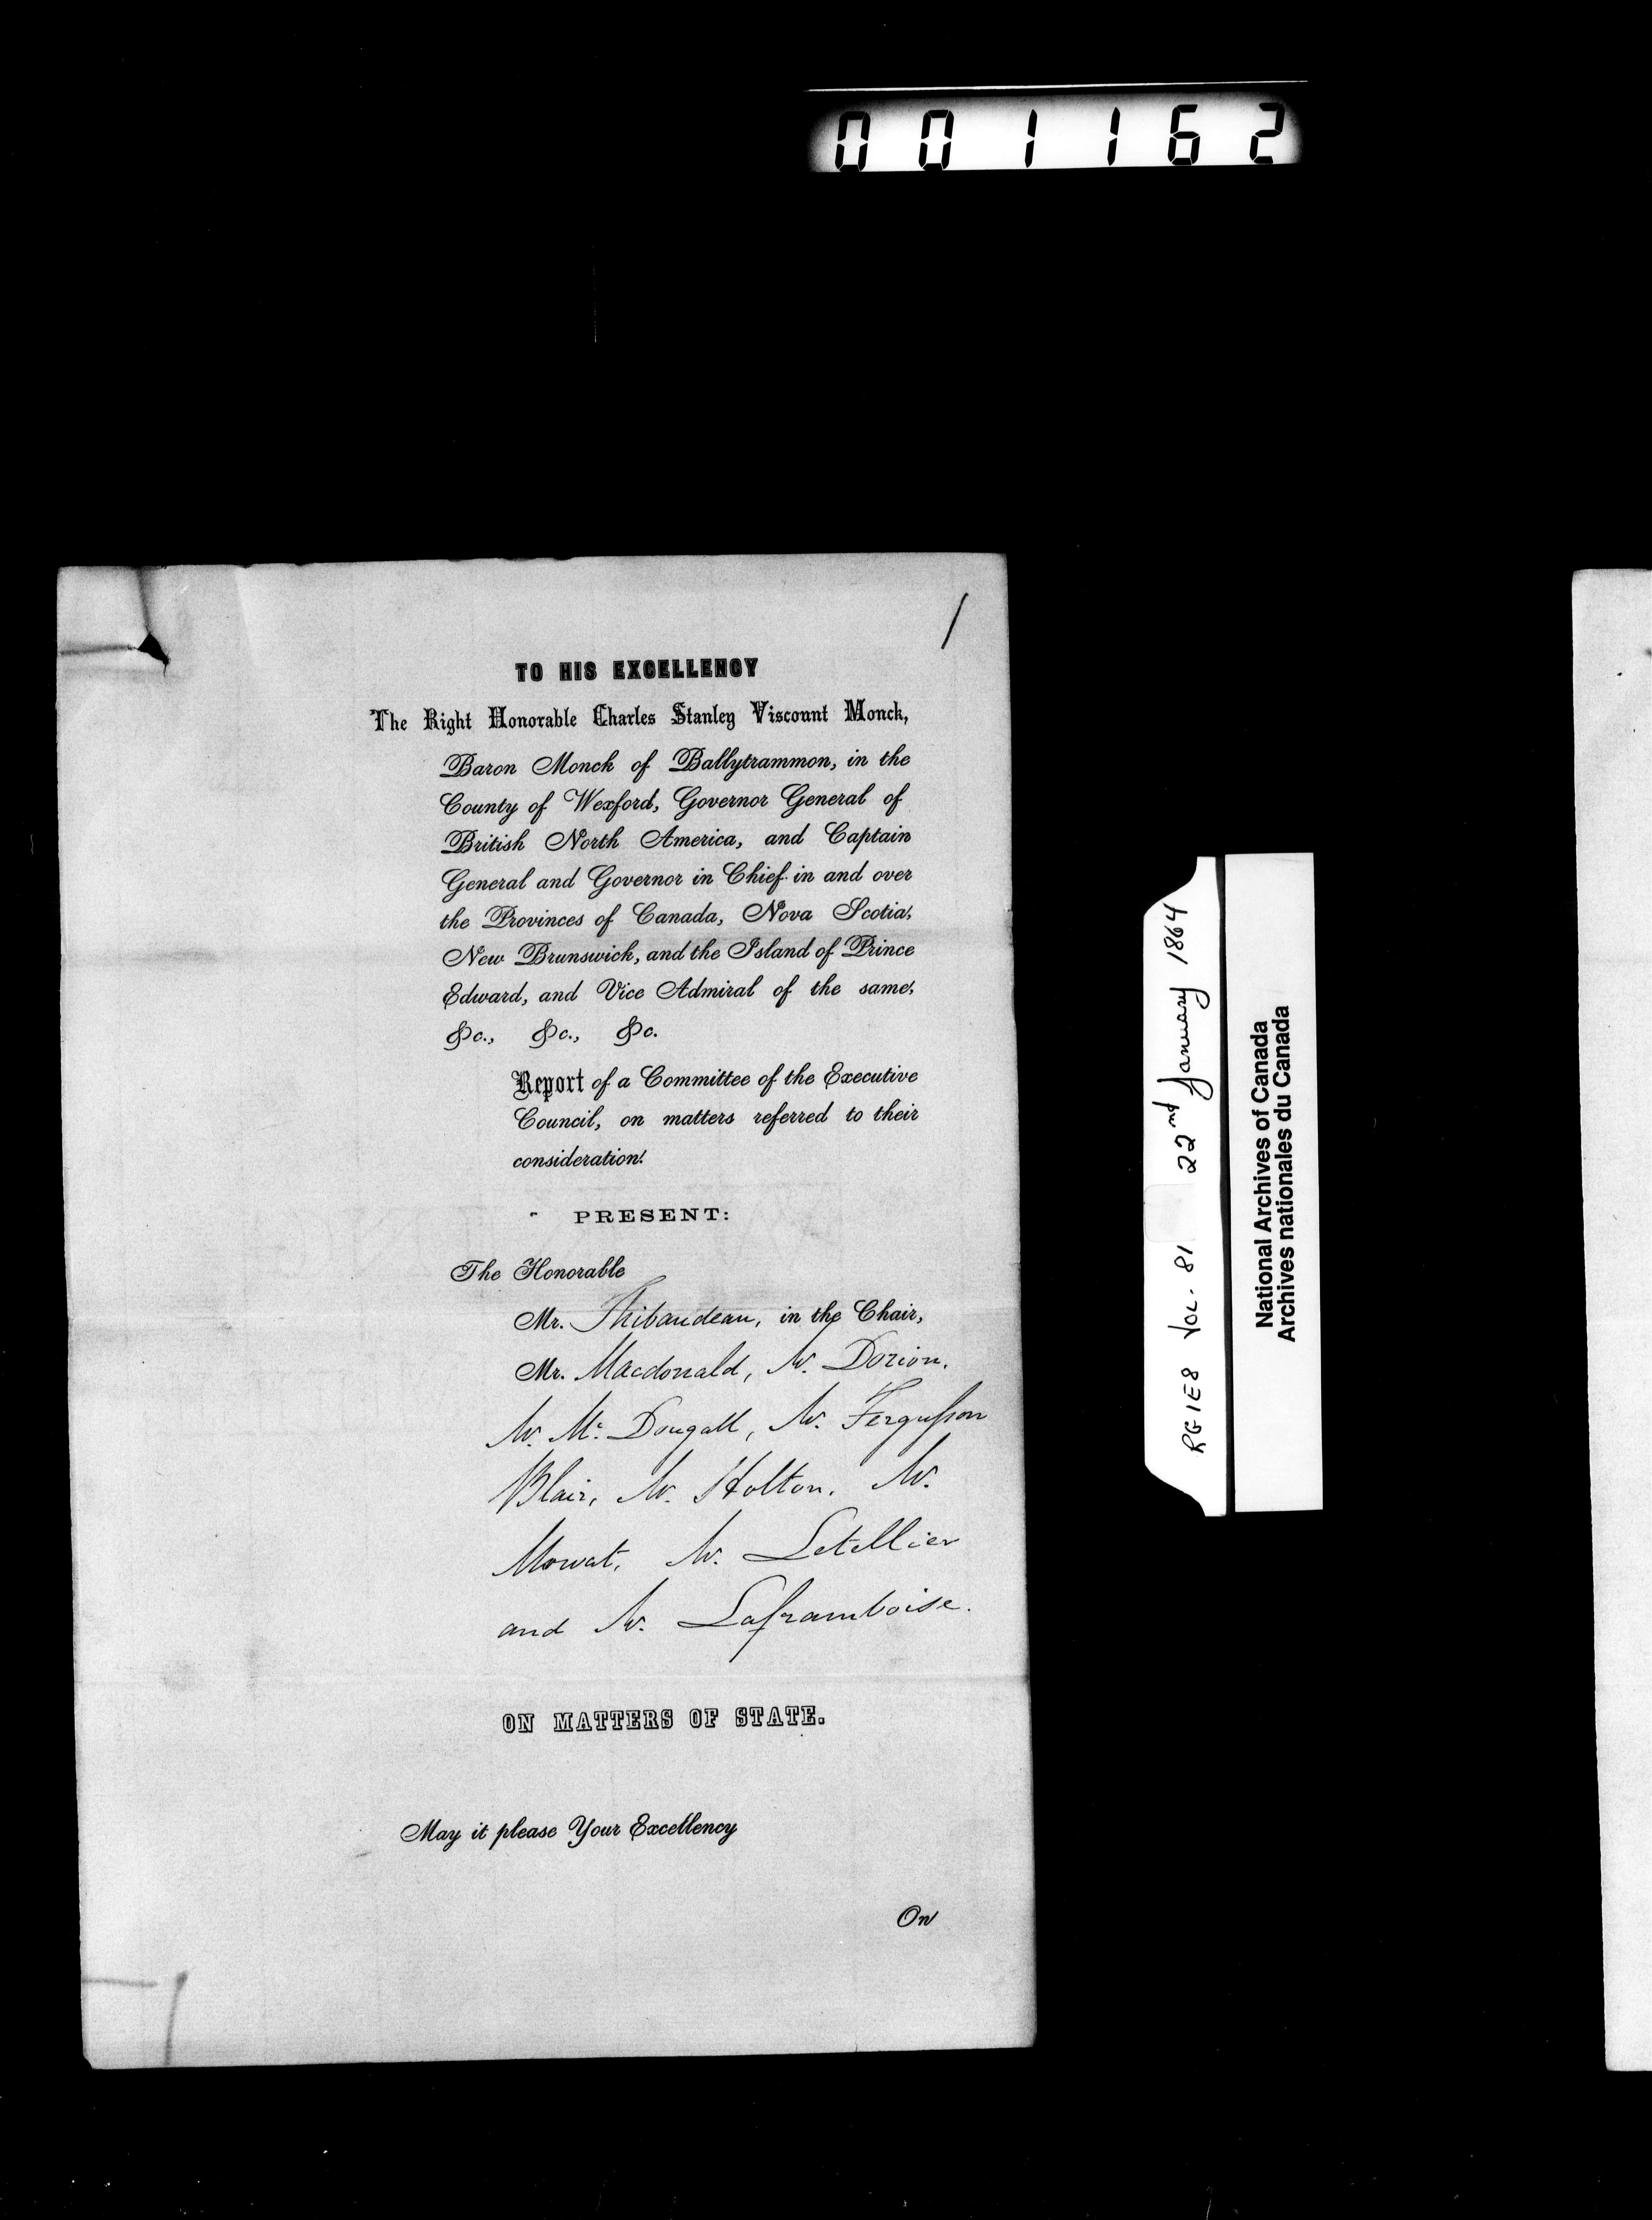 001162
/
TO HIS EXCELLENCY
The Right Honorable Charles Stanley Viscount Monck,
Baron Monck of Ballytrammon, in the
County of Wexford, Governor General of
British North America, and Captain
General and Governor in Chief in and over
the Provinces of Canada, Nova Scotia,
New Brunswick, and the Island of Prince
Edward, and Vice Admiral of the same,
&c., &c., &c.
Report of a Committee of the Executive
Council, on matters referred to their
consideration.
PRESENT:
The Honorable
Mr. Thibaudeau, in the Chair,
Mr. Macdonald, Mr. Dorion,
Mr. Mc Dougall, Mr. Fergusson
Blair, Mr. Holton, Mr.
Mowat, Mr. Letellier
and Mr. Laframboise.
ON MATTERS OF STATE.
May it please Your Excellency
On
RG1E8 Vol. 81 22nd January 1864
National Archives of Canada
Archives nationales du Canada